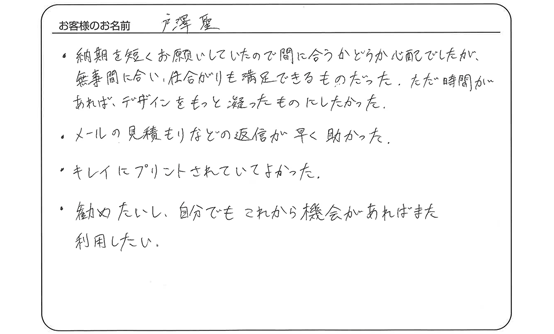 お客様のお名前 戸澤 聖
・納期を短くお願いしていたので間に合うかどうか心配でしたが、
無事間に合い、仕上がりも満足できるものだった。ただ時間が
あれば、デザインをもっと凝ったものにしたかった。
・メールの見積もりなどの返信が早く助かった。
・キレイにプリントされていてよかった。
・勧めたいし、自分でもこれから機会があればまた
利用したい。